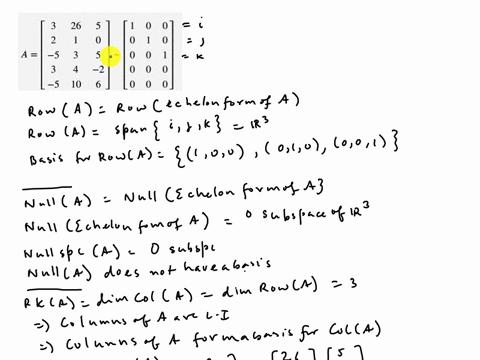 A = [ 3 26 5 ] ~ [ 1 0 0 ] = i
[ 2 1 0 ] [ 0 1 0 ] = j
[ -5 3 5 ] [ 0 0 1 ] = k
[ 3 4 -2 ] [ 0 0 0 ]
[ -5 10 6 ] [ 0 0 0 ]
Row (A) = Row (Echelon form of A)
Row (A) = span { i, j, k } = ℝ³
Basis for Row(A) = {(1,0,0) , (0,1,0), (0,0,1) }
Null (A) = Null (Echelon form of A}
Null (Echelon fom of A) = 0 subspace of ℝ³
Null spc (A) = 0 subspc
Null (A) does not have a basis
RK(A) = dim Col (A) = dim Row (A) = 3
=) Columns of A are L.I
=) Columns of A form a basis for Col(A)